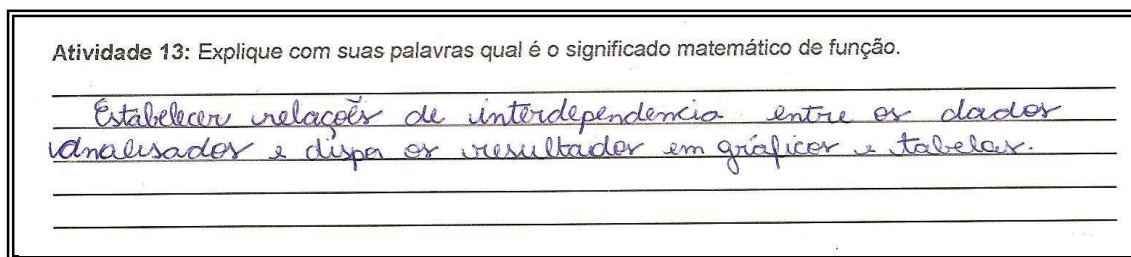 Atividade 13: Explique com suas palavras qual é o significado matemático de função.
Estabelecer relações de interdependencia entre os dados
analisados e dispor os resultados em gráficos e tabelas.